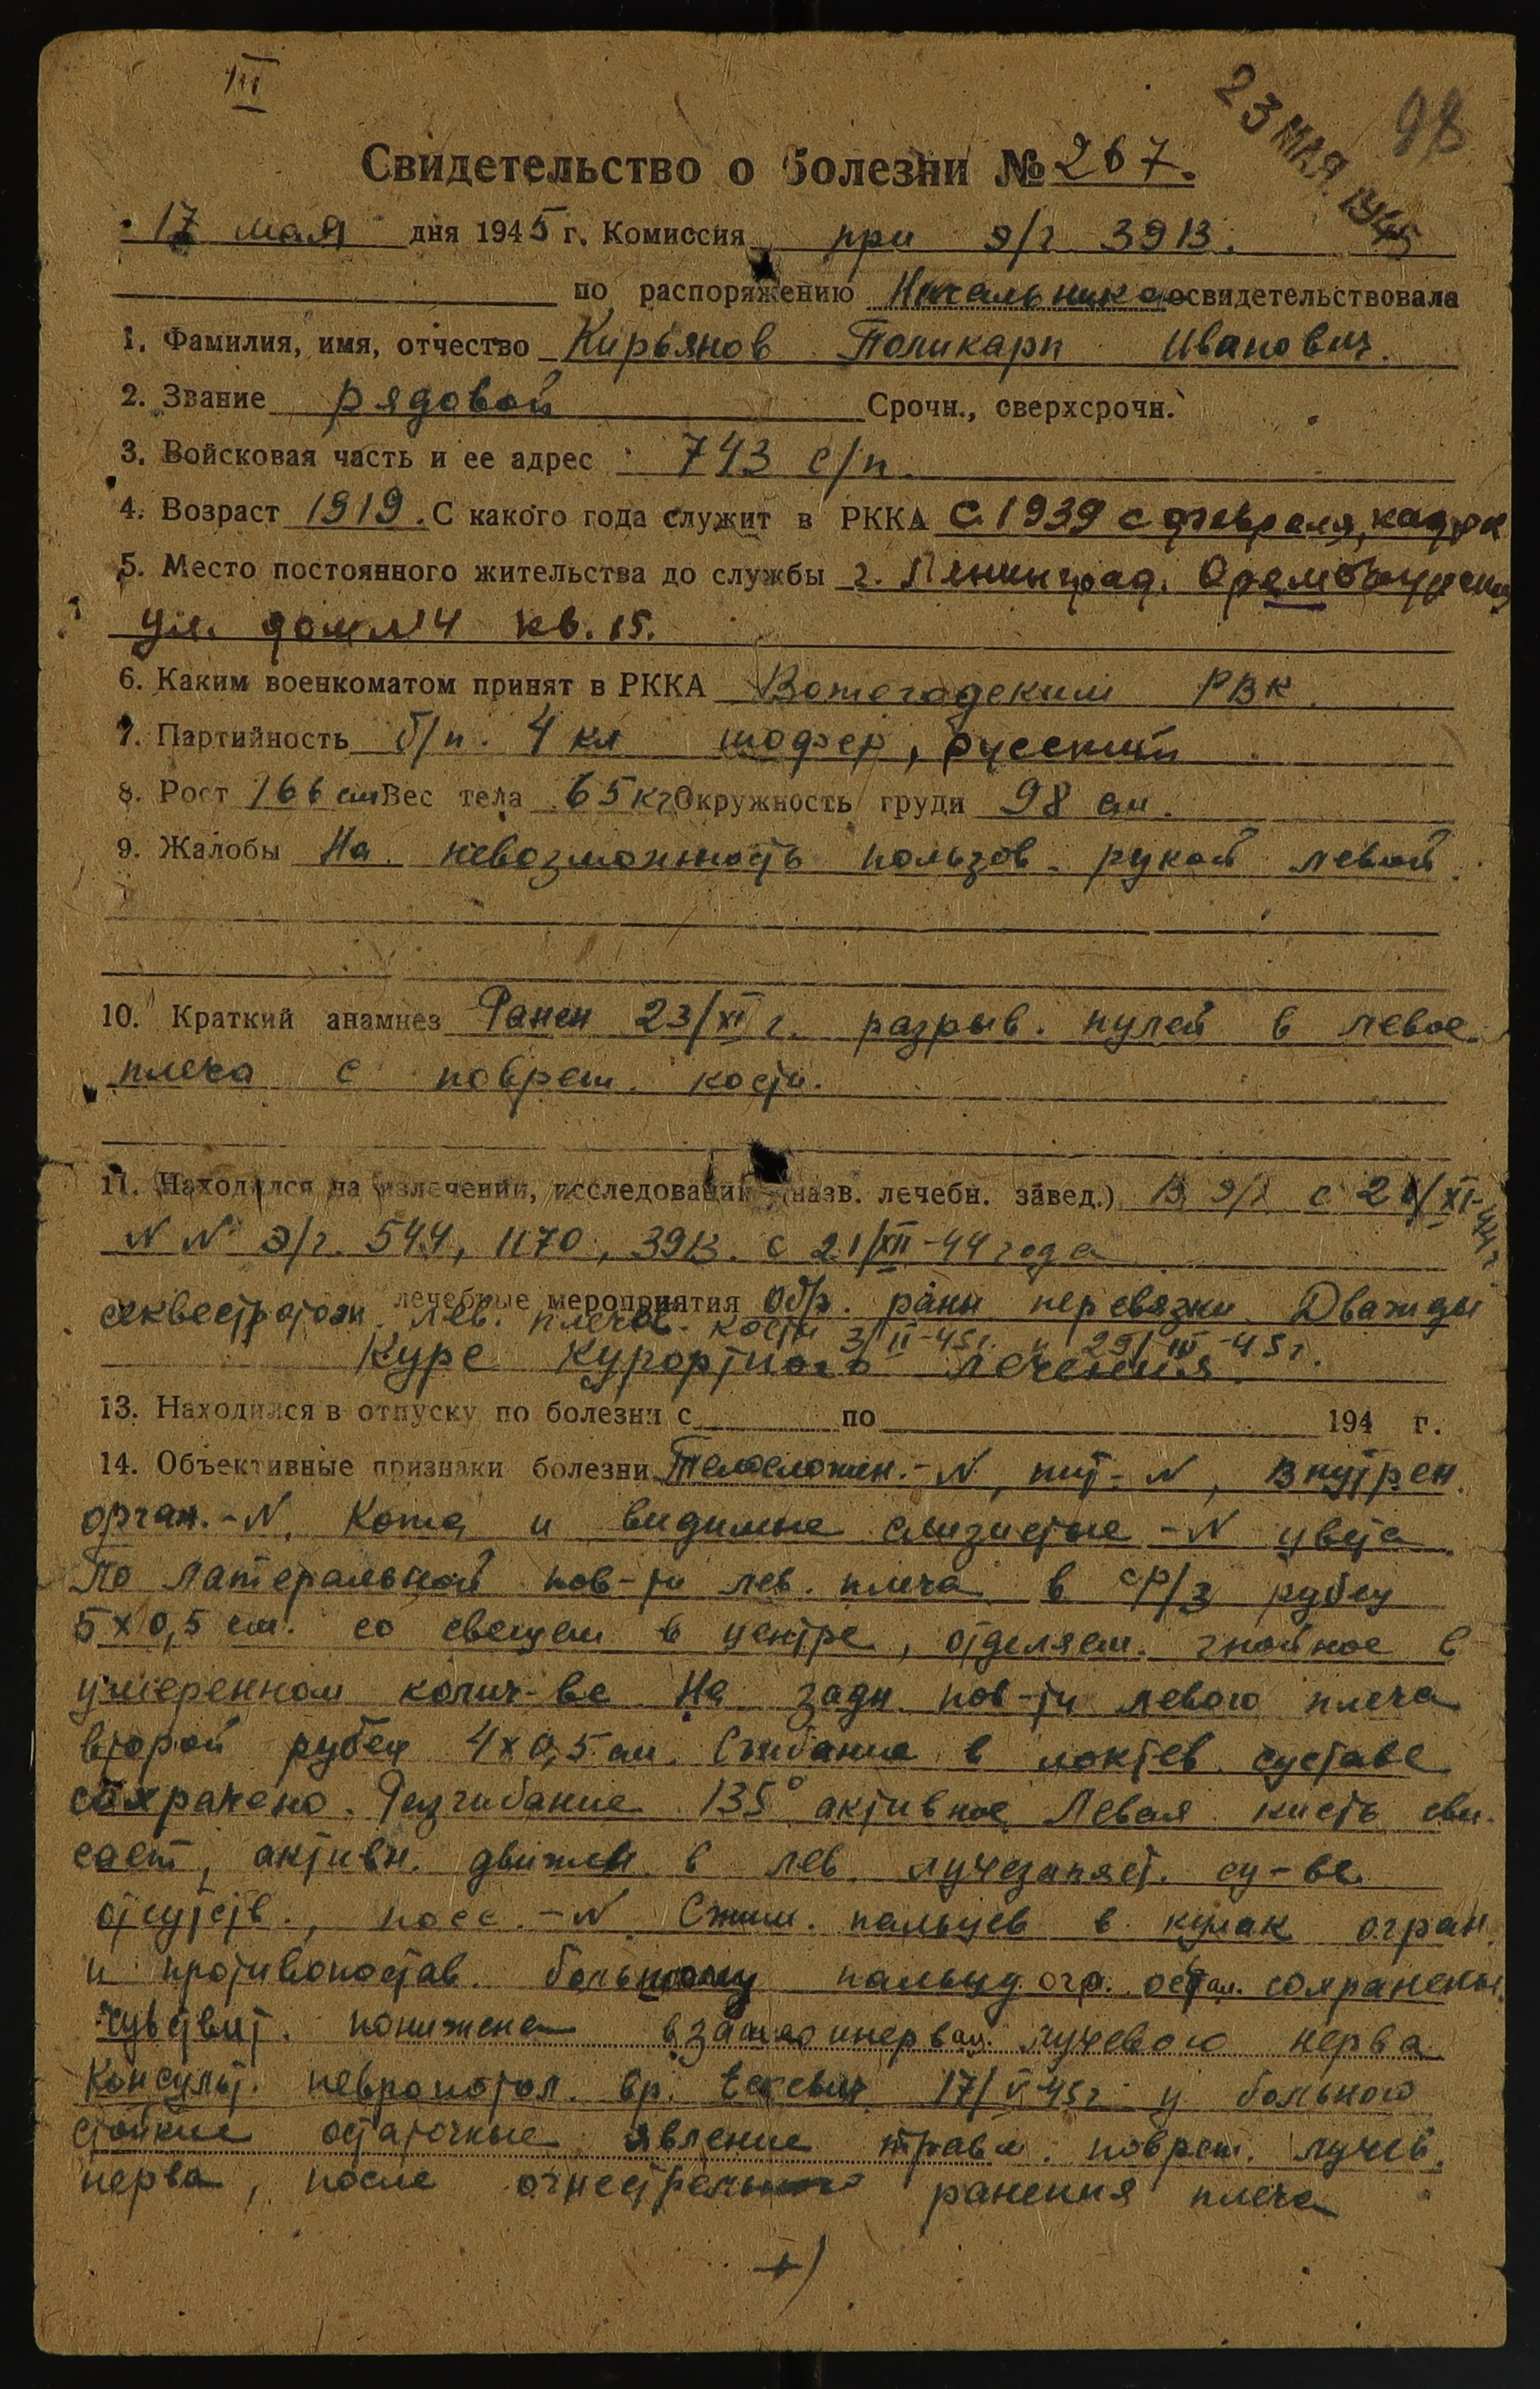 III
23 МАЯ 1945
98
Свидетельство о болезни № 267.
17 мая дня 1945 г. Комиссия при э/г 3913.
по распоряжению Начальника освидетельствовала
1. Фамилия, имя, отчество Кирьянов Поликарп Иванович.
2. Звание рядовой Срочн., сверхсрочн.
3. Войсковая часть и ее адрес 743 с/п.
4. Возраст 1919. С какого года служит в РККА с 1939 с февраля, кадров
5. Место постоянного жительства до службы г. Ленинград.
ул. дом №4 кв. 15.
6. Каким военкоматом принят в РККА РВК.
7. Партийность б/п. 4 кл шофер, русский
8. Рост 166 см Вес тела 65 кг Окружность груди 98 см.
9. Жалобы На невозможность пользов. рукой левой.
10. Краткий анамнез Ранен 23/XI г. разрыв. пулей в левое
плечо с повреж. кости.
11. Находился на излечении, исследовании (назв. лечебн. завед.) В э/г с
N N° э/г. 544, 1170, 3913. с 21/XII-44 года
лечебные мероприятия Обр. раны перевязки. Дважды
секвестротом. лев. плечев. кости 3/II-45 г. и 29/III-45 г.
Курс курортного лечения.
13. Находился в отпуску по болезни с по 194 г.
14. Объективные признаки болезни Телосложен.-N, пит-N, внутрен.
орган.-N. Кожа и видимые слизистые -N цвета.
По латеральной пов-ти лев. плеча в ср/з рубец
5х0,5 см. со свищем в центре, отделяем. гнойное в
умеренном колич-ве. На задн. пов-ти левого плеча
второй рубец 4х0,5 см. Сгибание в локтев. суставе
сохранено. Разгибание 135° активное. Левая кисть сви-
сает, активн. движен. в лев. лучезапяст. су-ве
отсутств., пасс.-N. Сжим. пальцев в кулак огран.
и противопостав. большому пальцу огр. остал. сохранены.
Чувствит. понижена в зоне инервац. лучевого нерва
Консульт. невропатол. вр. 17/V-45 г. у больного
стойкие остаточные явление травм. повреж. лучев.
нерва, после огнестрельного ранения плеча
+)